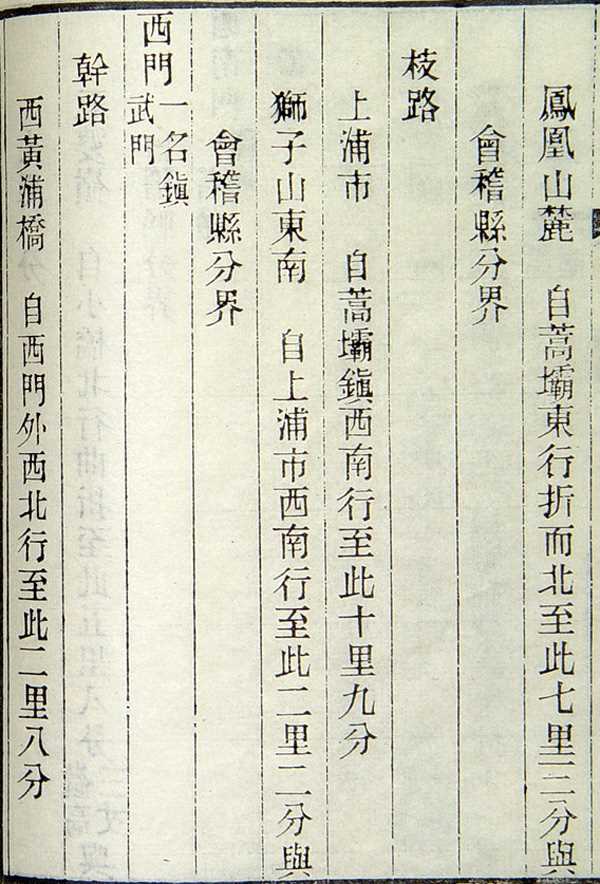 鳳凰山麓　自蒿壩東行折而北至此七里三分與
會稽縣分界
枝路
上浦市　自蒿壩鎭西南行至此十里九分
獅子山東南　自上浦市西南行至此二里二分與
會稽縣分界
西門一名鎭
武門
幹路
西黃浦橋　自西門外西北行至此二里八分